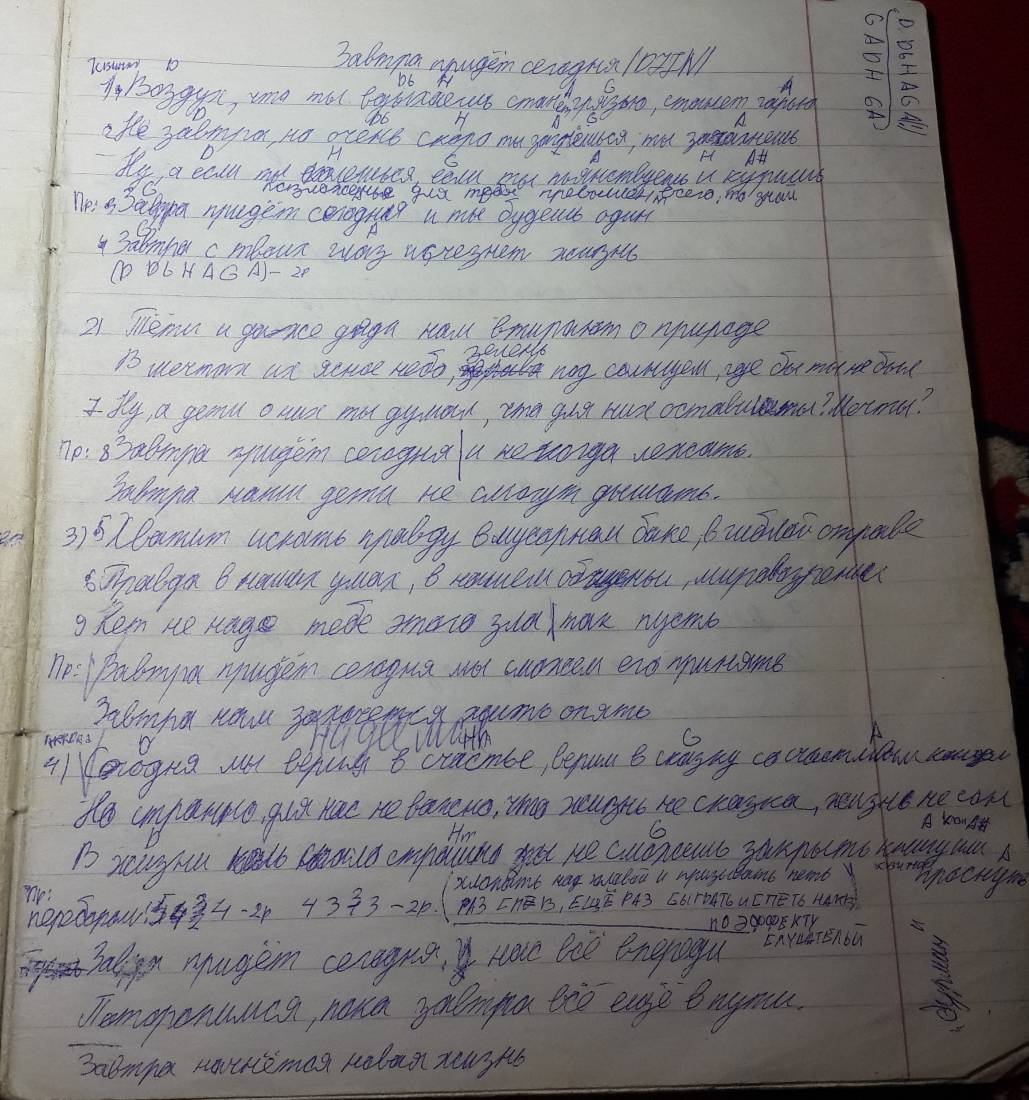 D Db H A G A(1)
G A D H GA)
Завтра придёт сегодня (DJIN)
D Db H A G A
1) Воздух, что ты вдыхаешь станет грязью, станет гарью
D Db H A G A
Не завтра, но очень скоро ты ты
D H G A H A#
Ну, а если ты если ты пьянствуешь и куришь
для превыше всего, то знай
G A
Пр: 3 Завтра придёт сегодня и ты будешь один
G A
4 Завтра с твоих глаз исчезнет жизнь
(D Db H A G A) - 2р
2) Тёти и даже дяди нам втирают о природе
зелень
В мечтах их ясное небо, под солнцем, где бы ты не был
7 Ну, а дети о них ты думал, что для них оставишь ты? Мечты?
Пр: 8 Завтра придёт сегодня и некогда лежать.
Завтра наши дети не смогут дышать.
3) 5 Хватит искать правду в мусорном баке, в гиблой отраве
6 Правда в наших умах, в нашем общеньи, мировозреньи
9 Нет не надо тебе этого зла так пусть
Пр: Завтра придёт сегодня мы сможем его принять
Завтра нам захочется жить опять
D Hm G A
4) Сегодня мы верим в счастье, верим в сказку со счастливым концом
Но странно, для нас не важно, что жизнь не сказка, жизнь не сон
D Hm G A или A#
В жизни страшно ты не сможешь закрыть книгу или
A
проснуться
хлопать над головой и призывать петь
Пр:
перебором: 4 - 2р 4 3 3 - 2р.
РАЗ СПЕВ, ЕЩЁ РАЗ СЫГРАТЬ И СПЕТЬ
ПО ЭФФЕКТУ
СЛУШАТЕЛЬЙ
Завтра придёт сегодня, у нас всё впереди
Поторопимся, пока завтра всё ещё в пути.
Завтра начнётся новая жизнь